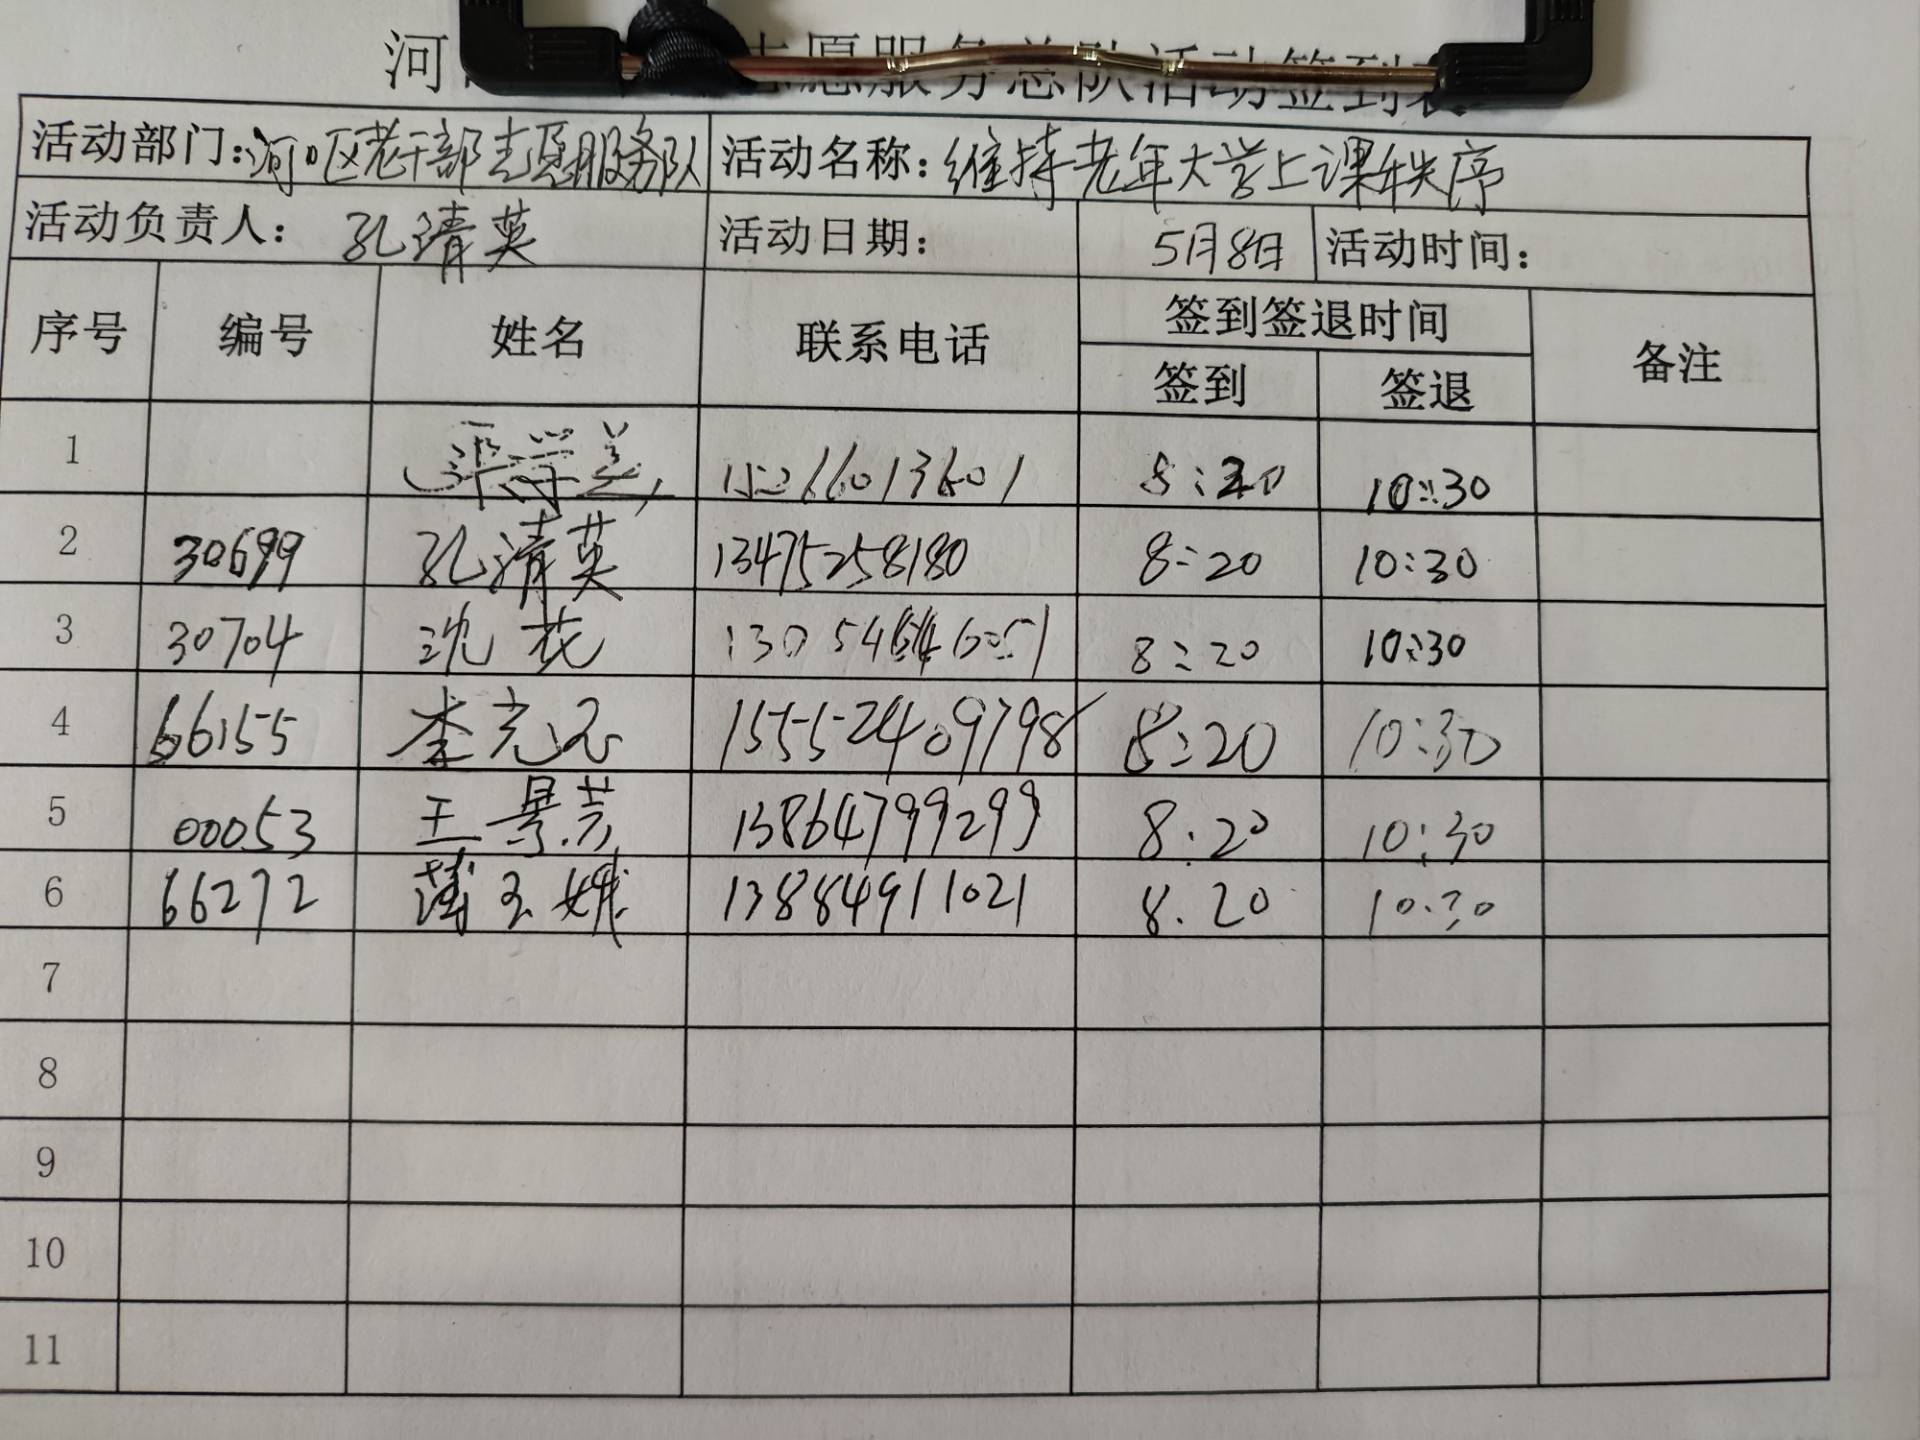 河 志愿服务总队活动签到表
活动部门:河口区老干部志愿服务队 活动名称:维持老年大学上课秩序
活动负责人: 孔清英 活动日期: 5月8日 活动时间:
序号 编号 姓名 联系电话 签到签退时间 备注
签到 签退
1 15266013601 8:20 10:30
2 30699 孔清英 13475258180 8:20 10:30
3 30704 沈花 8:20 10:30
4 66155 李 15552409798 8:20 10:30
5 00053 王景芸 13864799299 8:20 10:30
6 66272 薄玉娥 13884911021 8.20 10:30
7
8
9
10
11